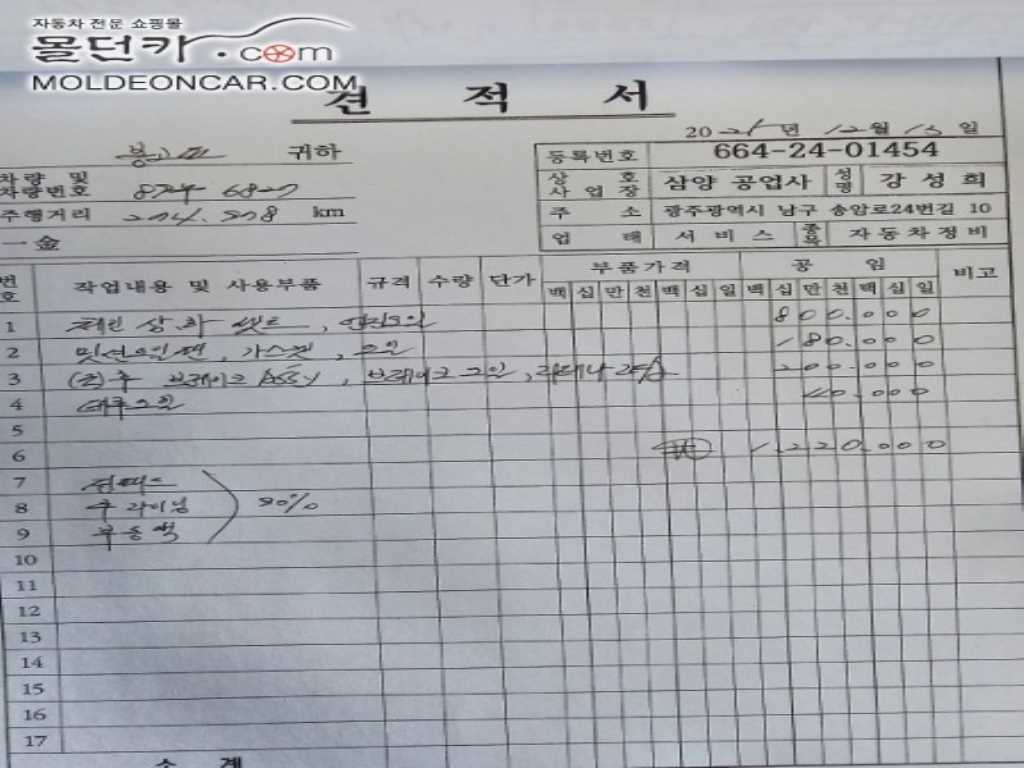 자동차 전문 쇼핑몰
몰던카.com
MOLDEONCAR.COM
견 적 서
2021 년 12 월 15 일
봉고Ⅲ 귀하
차량 및
차량번호
주행거리 204.808 km
一金
등록번호 664-24-01454
상 호
사업장 삼양 공업사 성명 강성희
주 소 광주광역시 남구 송암로24번길 10
업 태 서비스 종목 자동차정비
번호 작업내용 및 사용부품 규격 수량 단가 부품가격 공 임 비고
백 십 만 천 백 십 일 백 십 만 천 백 십 일
1 체인 상.하 셋트, 엔진오일 800.000
2 밋션오일팬, 가스켓, 오일 180.000
3 브레이크 ASSY, 브레이크오일, 200.000
4 데후오일 40.000
5
6 1.220.000
7
8 후 라이닝 80%
9 부동액
10
11
12
13
14
15
16
17
소 계